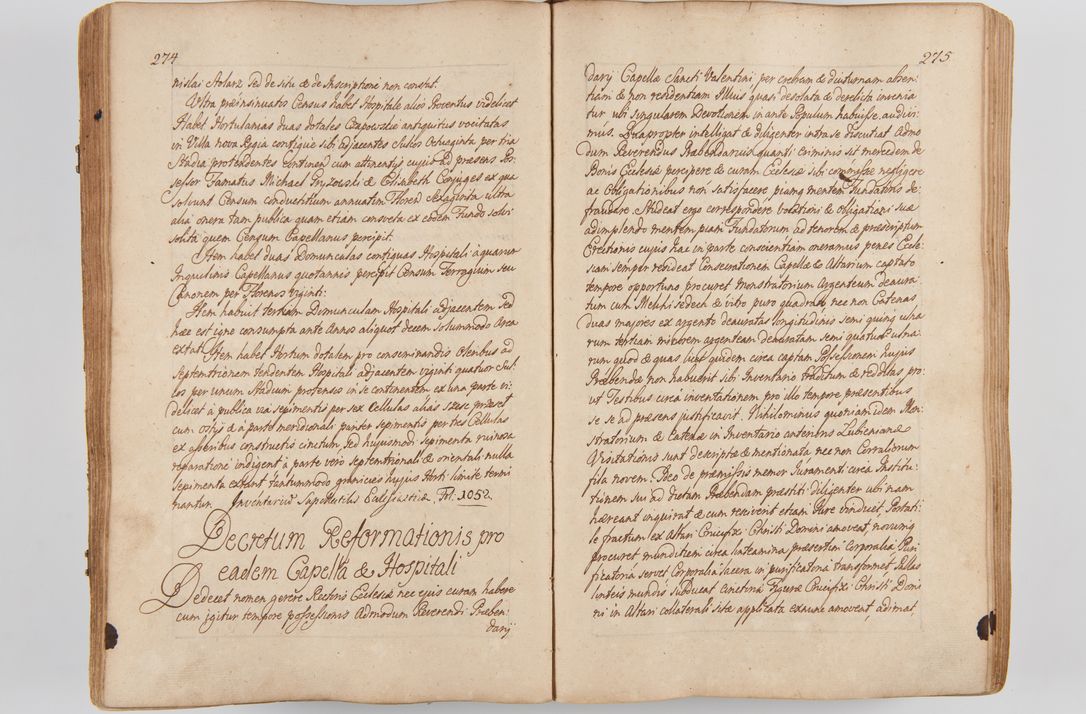 274
nislai Stolarz sed de situ & de Inscriptione non constat.
Ultra præinsinuatos Census habet Hospitale alios Proventus videlicet
Habet Hortulanias duas dotales Czapowskie antiquitus vocitatas
in Villa nova Regia contigue sibi adjacentes Sulcos Octuaginta per tria
Stadia protendentes continen: cum attinentijs cujus ad præsens Pos-
sessor Famatus Michael & Elisabeth Conjuges ex qua
solvunt Censum conductitium annuatim Floren: Sexaginta ultra
alia onera tam publica quam etiam consveta ex eodem Fundo solvi
solita quem Censum Capellanus percipit.
Item habet duas Domunculas contiguas Hospitali à quarum
Inquilinis Capellanus quotannis percipit Censum Terragium seu
Canonem per Florenos viginti.
Item habuit tertiam Domunculam Hospitali adjacentem sed
hæc est igne consumpta ante Annos aliquot decem solummodo Area
extat. Item habet Hortum dotalem pro conseminandis Oleribus ad
Septemtrionem tendentem Hospitali adjacentem viginti quatuor Sul-
cos per unum Stadium protenso in se continentem ex una parte vi-
delicet a publica via sepimentis per sex Cellulas alias
cum ostijs & à parte meridionali pariter sepimentis per tres Cellulas
ex asseribus constructis cinctum, sed hujusmodi sepimenta ruinosa
reparatione indigent à parte vero septemtrionali & orientali nulla
sepimenta extent tantummodo granicies hujus Horti limite termi
nantur. Inventarium Supellectilis Ecclesiasticæ Fol: 1052.
Decretum Reformationis pro
eadem Capella & Hospitali
Dedecet nomen gerere Rectoris Ecclesiæ nec ejus curam habere
cum igitur tempore possessionis Admodum Reverendi Præben-
darij
275
darij Capellæ Sancti Valentini per crebram & diuturnam absen-
tiam & non residentiam Illius quasi desolata & derelicta invenia
tur ubi singularem Devotionem in ante Populum habuisse audivi-
mus. Quapropter intelligat & diligenter intra se discutiat Admo
dum Reverendus Præbendarius quanti criminis sit mercedem de
Bonis Ecclesiæ percipere & curam Ecclesiæ sibi commissæ negligere
ac Obligationibus non satisfacere piamq mentem Fundatoris de-
fraudare. Studeat ergo correspondere vocationi & obligationi suæ
adimplendo mentem piam Fundatorum ad tenorem & præscriptum
Erectionis cujus hac in parte conscientiam oneramus penes Eccle-
siam semper resideat Consecrationem Capellæ & Altarium captato
tempore opportuno procuret Monstratorium Argenteum deaura-
tum cum Melchisedech & vitro puro quadrato nec non Catenas
duas majores ex argento deauratas longitudinis semi quinq ulna
rum tertiam minorem argenteam deauratam semi quatuor ulna-
rum quod & quas licet quidem circa captam Possessionem hujus
Præbendæ non habuerit sibi Inventario traditum & redditas pro-
ut Testibus circa inventationem pro illo tempore præsentibus
se se ad præsens justificavit. Nihilominus quoniam idem Mon-
stratorium & Catenæ in Inventario anterioris Lubiensianæ
Visitationis sunt descriptæ & mentionata nec non Corraliorum
fila novem. Ideo de præmissis memor Iuramenti circa Institu-
tionem sui ad dictam Præbendam præstiti diligenter ubi nam
hæreant inquirat & cum resciverit etiam Iure vindicet, Portati-
le fractum ex Altari Crucifixi Christi Domini amoveat, novumq
procuret munditiem circa linteamina præsertim Corporalia Puri
ficatoria servet Corporalia lacera in purificatoria transformet Pallas
linteis mundis subducat cincturia Figuræ Crucifixi Christi Domi
ni in Altari collaterali sitæ applicata exinde amoveat, adimat